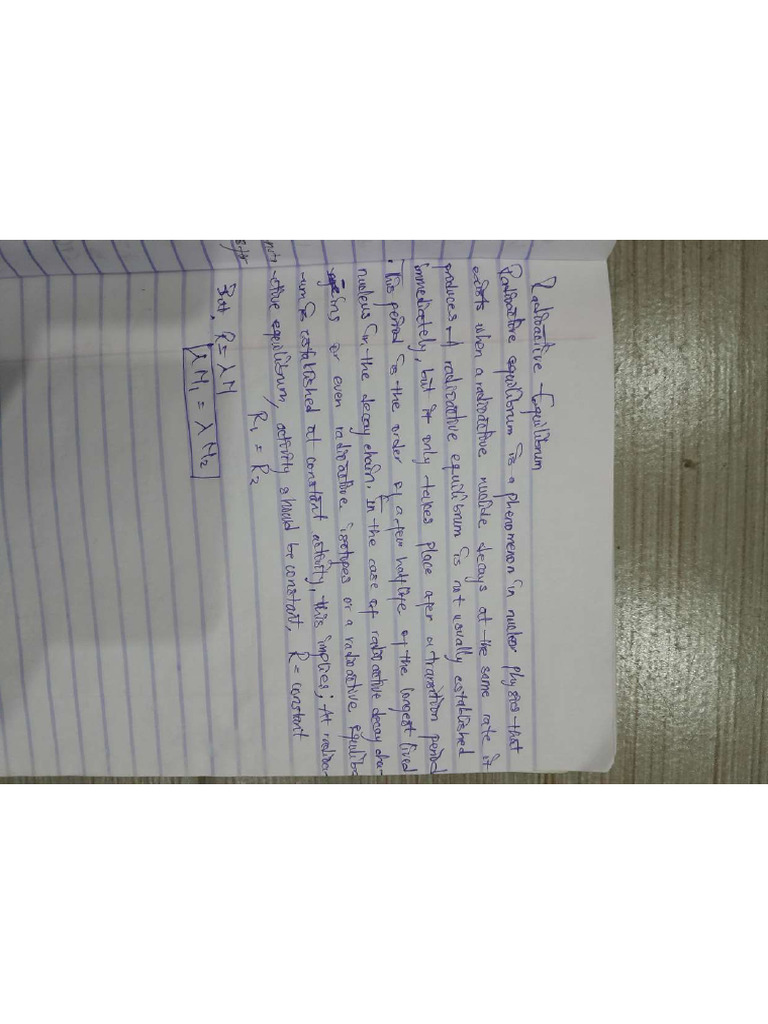 Radioactive Equilibrum
Radioactive equilibrum is a phenomenon in nuclear physics that
exists when a radioactive nuclide decays at the same rate it
produces. A radioactive equilibrum is not usually established
immediately, but it only takes place after a transition period
. This period is the order of a few half life of the longest lived
nucleus in the decay chain. In the case of radioactive decay cha-
ins or even radioactive isotopes or a radioactive equilibr-
um is established at constant activity, this implies; At radioa-
ctive equilibrium, activity should be constant, R = constant
R₁ = R₂
But. R = λN
λN₁ = λN₂